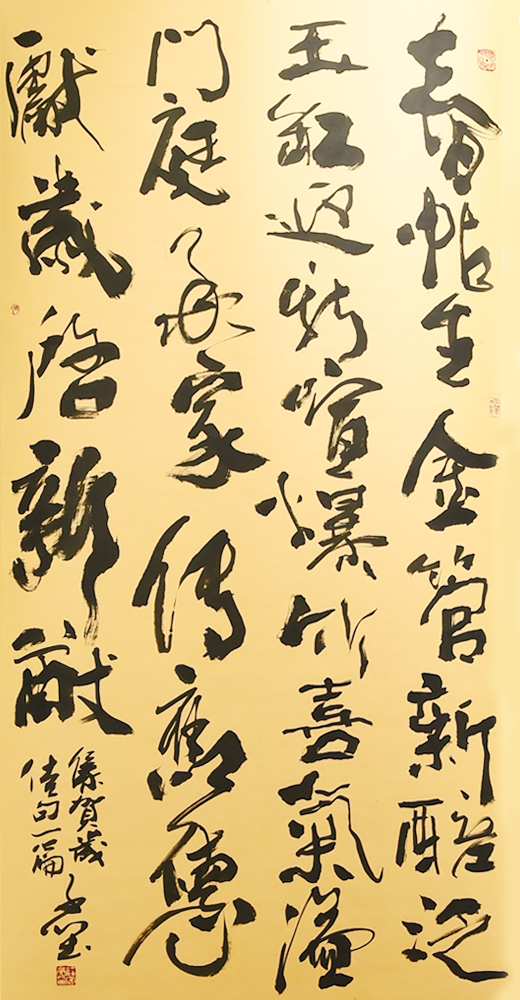 春帖生金管新醅泛
玉缸迎新喧爆竹喜氣溢
門庭承家傳德
獻歲啟新猷
集賀歲
佳句一篇